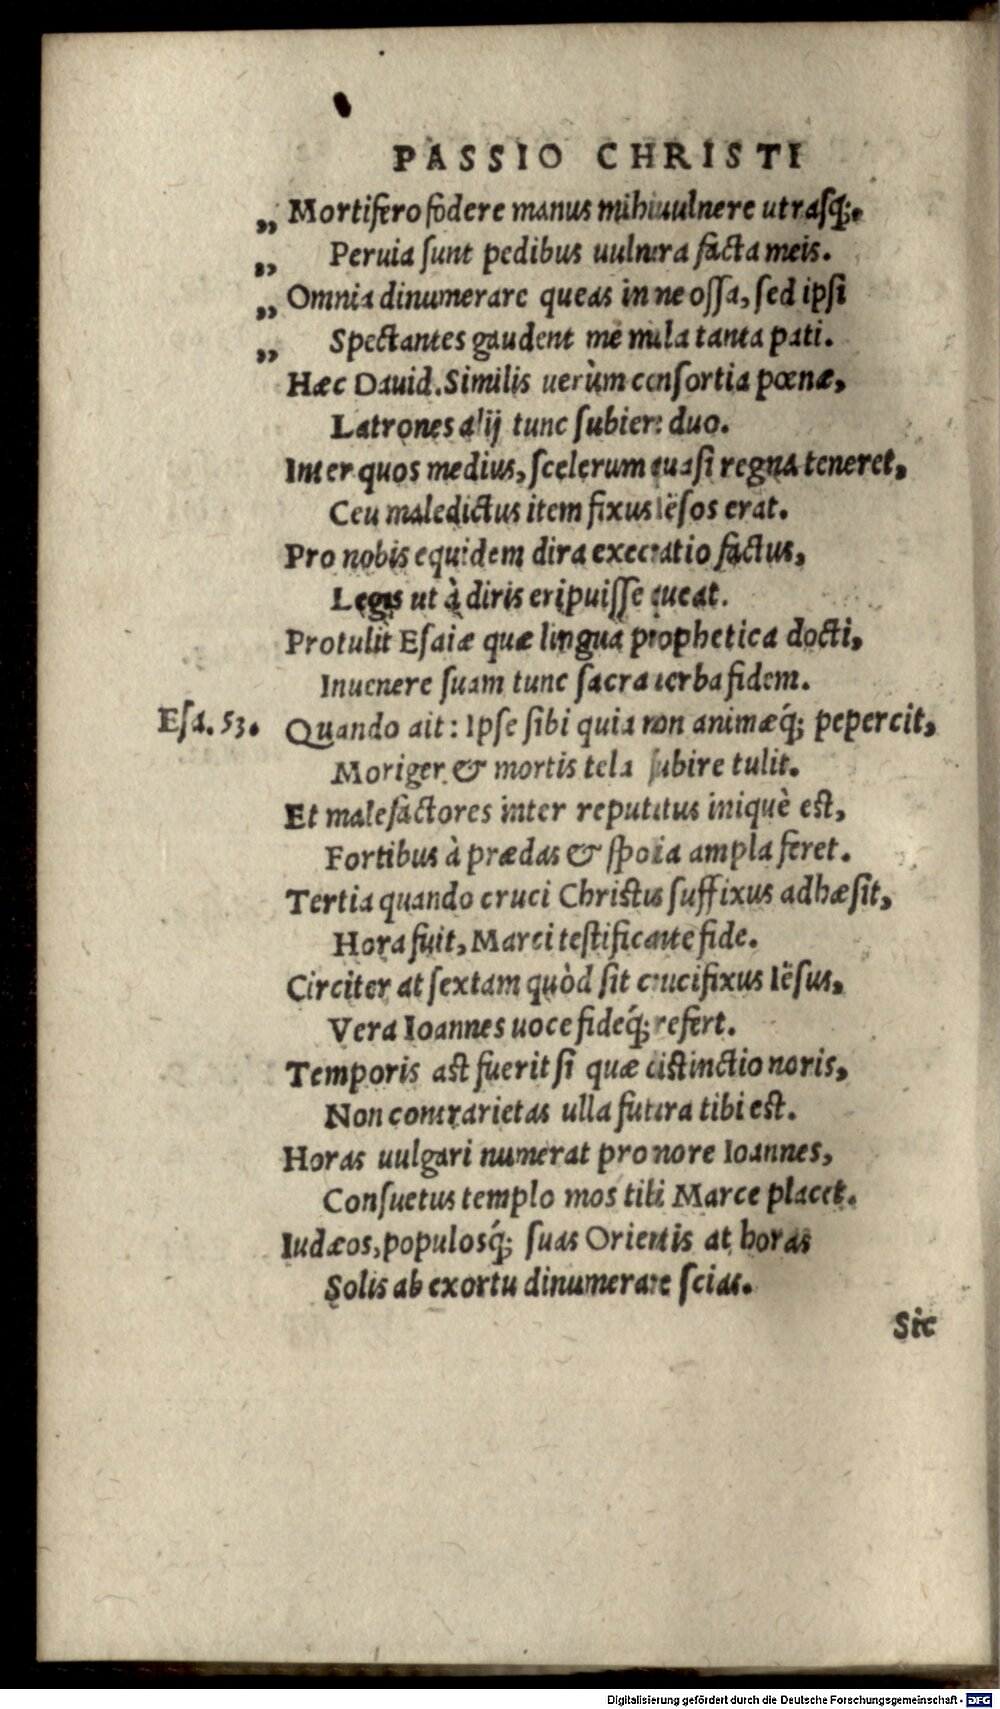 PASSIO CHRISTI
„ Mortifero fodere manus mihi uulnere utrasq́;.
„ Peruia sunt pedibus uulnera facta meis.
„ Omnia dinumerare queas in me ossa, sed ipsi
„ Spectantes gaudent me mala tanta pati.
Hæc Dauid. Similis uerùm consortia pœnæ,
Latrones alij tunc subiere duo.
Inter quos medius, scelerum quasi regna teneret,
Ceu maledictus item fixus Iësos erat.
Pro nobis equidem dira execratio factus,
Legis ut à diris eripuisse queat.
Protulit Esaiæ quæ lingua prophetica docti,
Inuenere suam tunc sacra uerba fidem.
Esa. 53. Quando ait: Ipse sibi quia non animæq́; pepercit,
Moriger & mortis tela subire tulit.
Et malefactores inter reputatus iniquè est,
Fortibus à prædas & spolia ampla feret.
Tertia quando cruci Christus suffixus adhæsit,
Hora fuit, Marci testificante fide.
Circiter at sextam quòd sit crucifixus Iësus,
Vera Ioannes uoce fideq́; refert.
Temporis ast fuerit si quæ distinctio noris,
Non contrarietas ulla futura tibi est.
Horas uulgari numerat pro more Ioannes,
Consuetus templo mos tibi Marce placet.
Iudæos, populosq́; suas Orientis at horas
Solis ab exortu dinumerare scias.
Sic
Digitalisierung gefördert durch die Deutsche Forschungsgemeinschaft - DFG